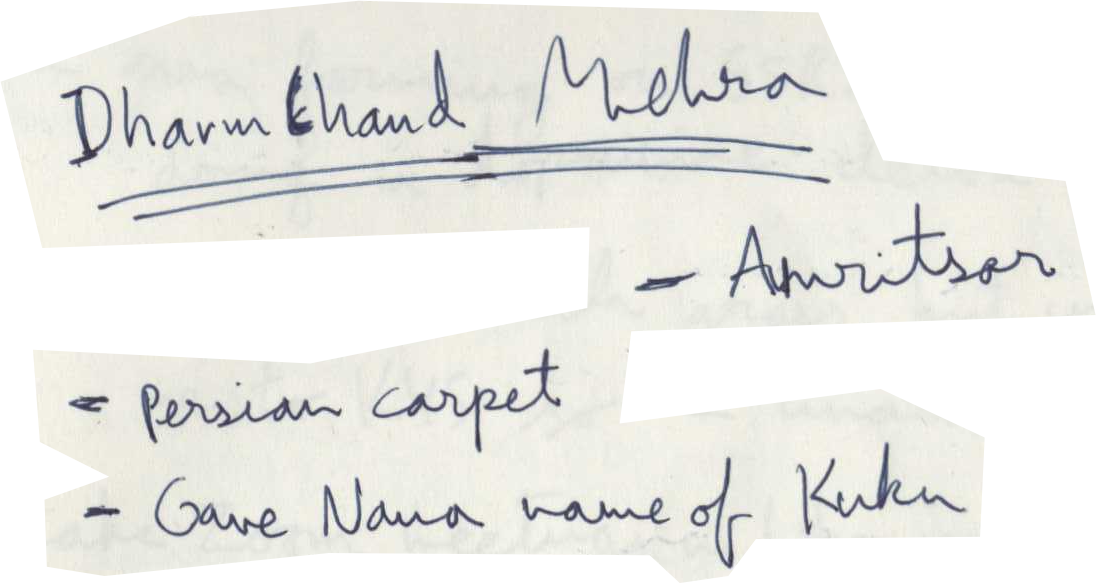 Dharm Chand Mehra
- Amritsar
- Persian carpet
- Gave Nana name of Kuku